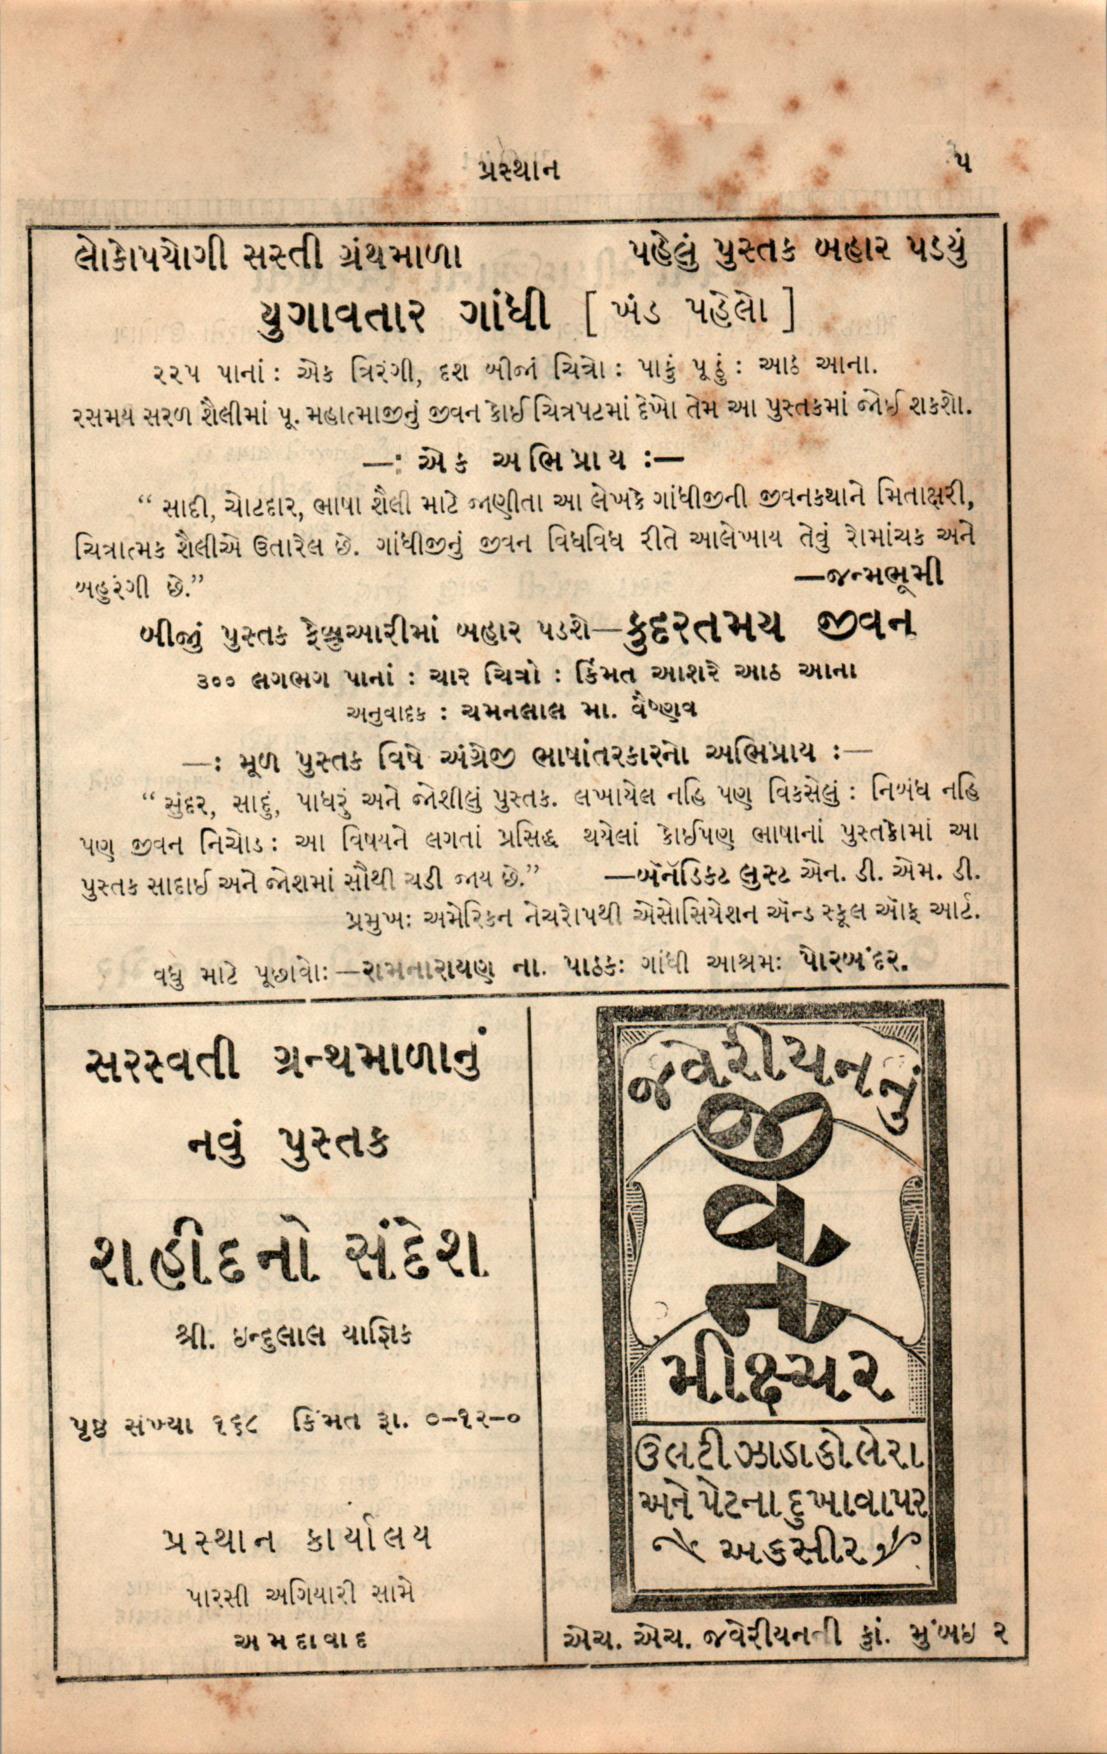 પ્રસ્થાન
૫
લોકોપયોગી સસ્તી ગ્રંથમાળા પહેલું પુસ્તક બહાર પડયું
યુગાવતાર ગાંધી [ ખંડ પહેલો ]
૨૨૫ પાનાં : એક ત્રિરંગી, દશ બીજાં ચિત્રો : પાકું પૂઠું : આઠ આના.
રસમય સરળ શૈલીમાં પૂ. મહાત્માજીનું જીવન કોઈ ચિત્રપટમાં દેખો તેમ આ પુસ્તકમાં જોઈ શકશો.
—: એક અભિપ્રાય :—
“ સાદી, ચોટદાર, ભાષા શૈલી માટે જાણીતા આ લેખકે ગાંધીજીની જીવનકથાને મિતાક્ષરી,
ચિત્રાત્મક શૈલીએ ઉતારેલ છે. ગાંધીજીનું જીવન વિધવિધ રીતે આલેખાય તેવું રોમાંચક અને
બહુરંગી છે.” —જન્મભૂમી
બીજું પુસ્તક ફેબ્રુઆરીમાં બહાર પડશે—કુદરતમય જીવન
૩૦૦ લગભગ પાનાં : ચાર ચિત્રો : કિંમત આશરે આઠ આના
અનુવાદક : ચમનલાલ મા. વૈષ્ણવ
—: મૂળ પુસ્તક વિષે અંગ્રેજી ભાષાંતરકારનો અભિપ્રાય :—
“ સુંદર, સાદું, પાધરું અને જોશીલું પુસ્તક. લખાયેલ નહિ પણ વિકસેલું : નિબંધ નહિ
પણ જીવન નિચોડ : આ વિષયને લગતાં પ્રસિદ્ધ થયેલાં કોઈપણ ભાષાનાં પુસ્તકોમાં આ
પુસ્તક સાદાઈ અને જોશમાં સૌથી ચડી જાય છે.” —બેંનેંડિકટ લુસ્ટ એન. ડી. એમ. ડી.
પ્રમુખ: અમેરિકન નેચરોપથી એસોસિયેશન ઍન્ડ સ્કૂલ ઑફ આર્ટ.
વધુ માટે પૂછાવો: —રામનારાયણ ના. પાઠક: ગાંધી આશ્રમ: પોરબંદર.
સરસ્વતી ગ્રન્થમાળાનું
નવું પુસ્તક
શહીદનો સંદેશ
શ્રી. ઇન્દુલાલ યાજ્ઞિક
પૃષ્ઠ સંખ્યા ૧૬૮ કિંમત રૂા. ૦-૧૨-૦
પ્રસ્થાન કાર્યાલય
પારસી અગિયારી સામે
અમદાવાદ
જવેરીયનનું
જીવન
મીક્ષ્ચર
ઉલટી ઝાડા કોલેરા
અને પેટના દુખાવા પર
અકસીર
એચ. એચ. જવેરીયનની કુાં. મુંબઇ ૨